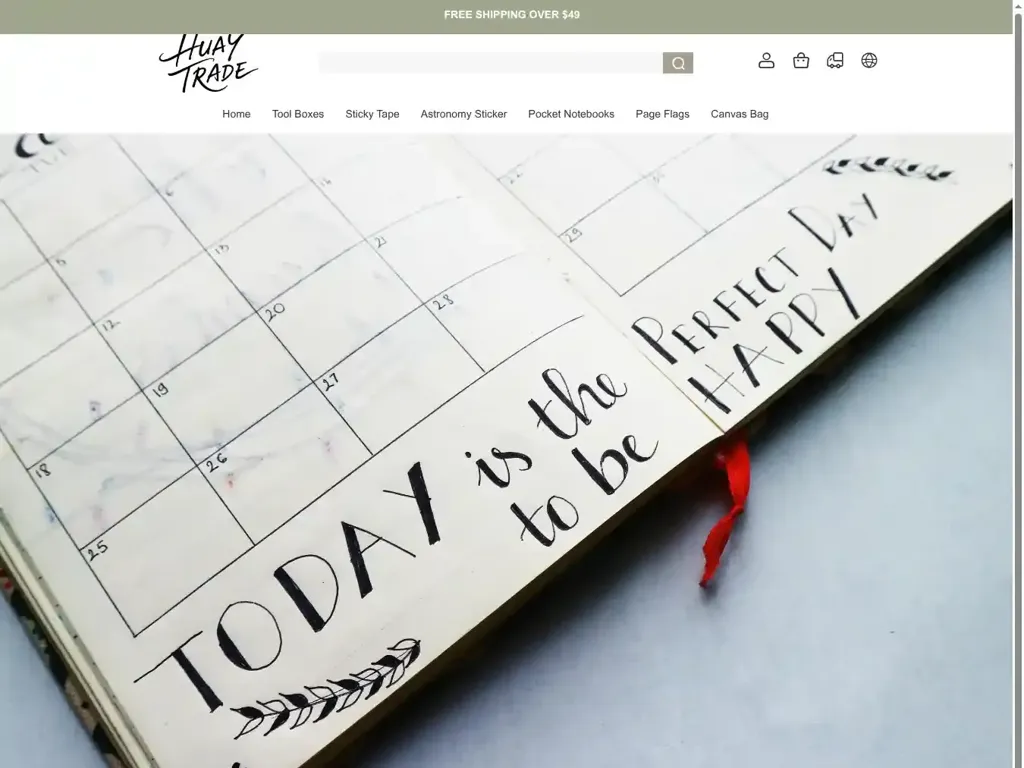 FREE SHIPPING OVER $49
HUAY
TRADE
Home
Tool Boxes
Sticky Tape
Astronomy Sticker
Pocket Notebooks
Page Flags
Canvas Bag
5
6
12
13
18
19
20
21
25
26
27
28
29
TODAY is the
to be
PERFECT DAY
HAPPY